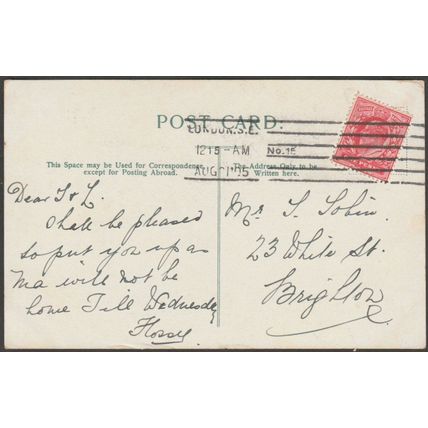 POST CARD.
LONDON.S.E.
12 15 - AM
No. 15
AUG 1 15
This Space may be Used for Correspondence
except for Posting Abroad.
The Address Only to be
Written here.
Dear T & L.
I shall be pleased
to put you up as
Ma will not be
home Till Wednesday
Flossy
Mr. S. Tobin.
23 White St.
Brighton